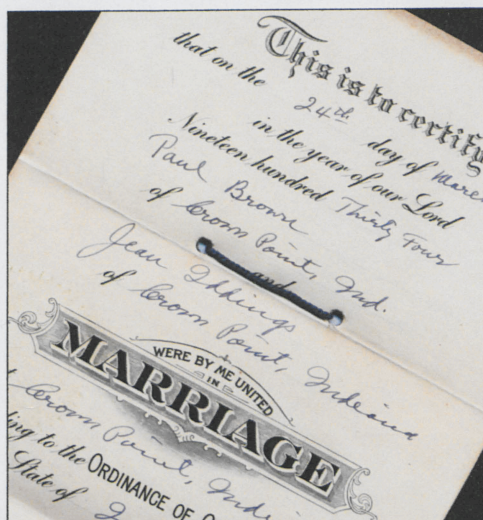 This is to certify
that on the 24th day of
in the year of our Lord
Nineteen hundred Thirty Four
Paul Brown
of Crown Point, Ind.
and
Jean Iddings
of Crown Point, Indiana
WERE BY ME UNITED
IN
MARRIAGE
Crown Point, Indi
ding to the ORDINANCE OF
State of